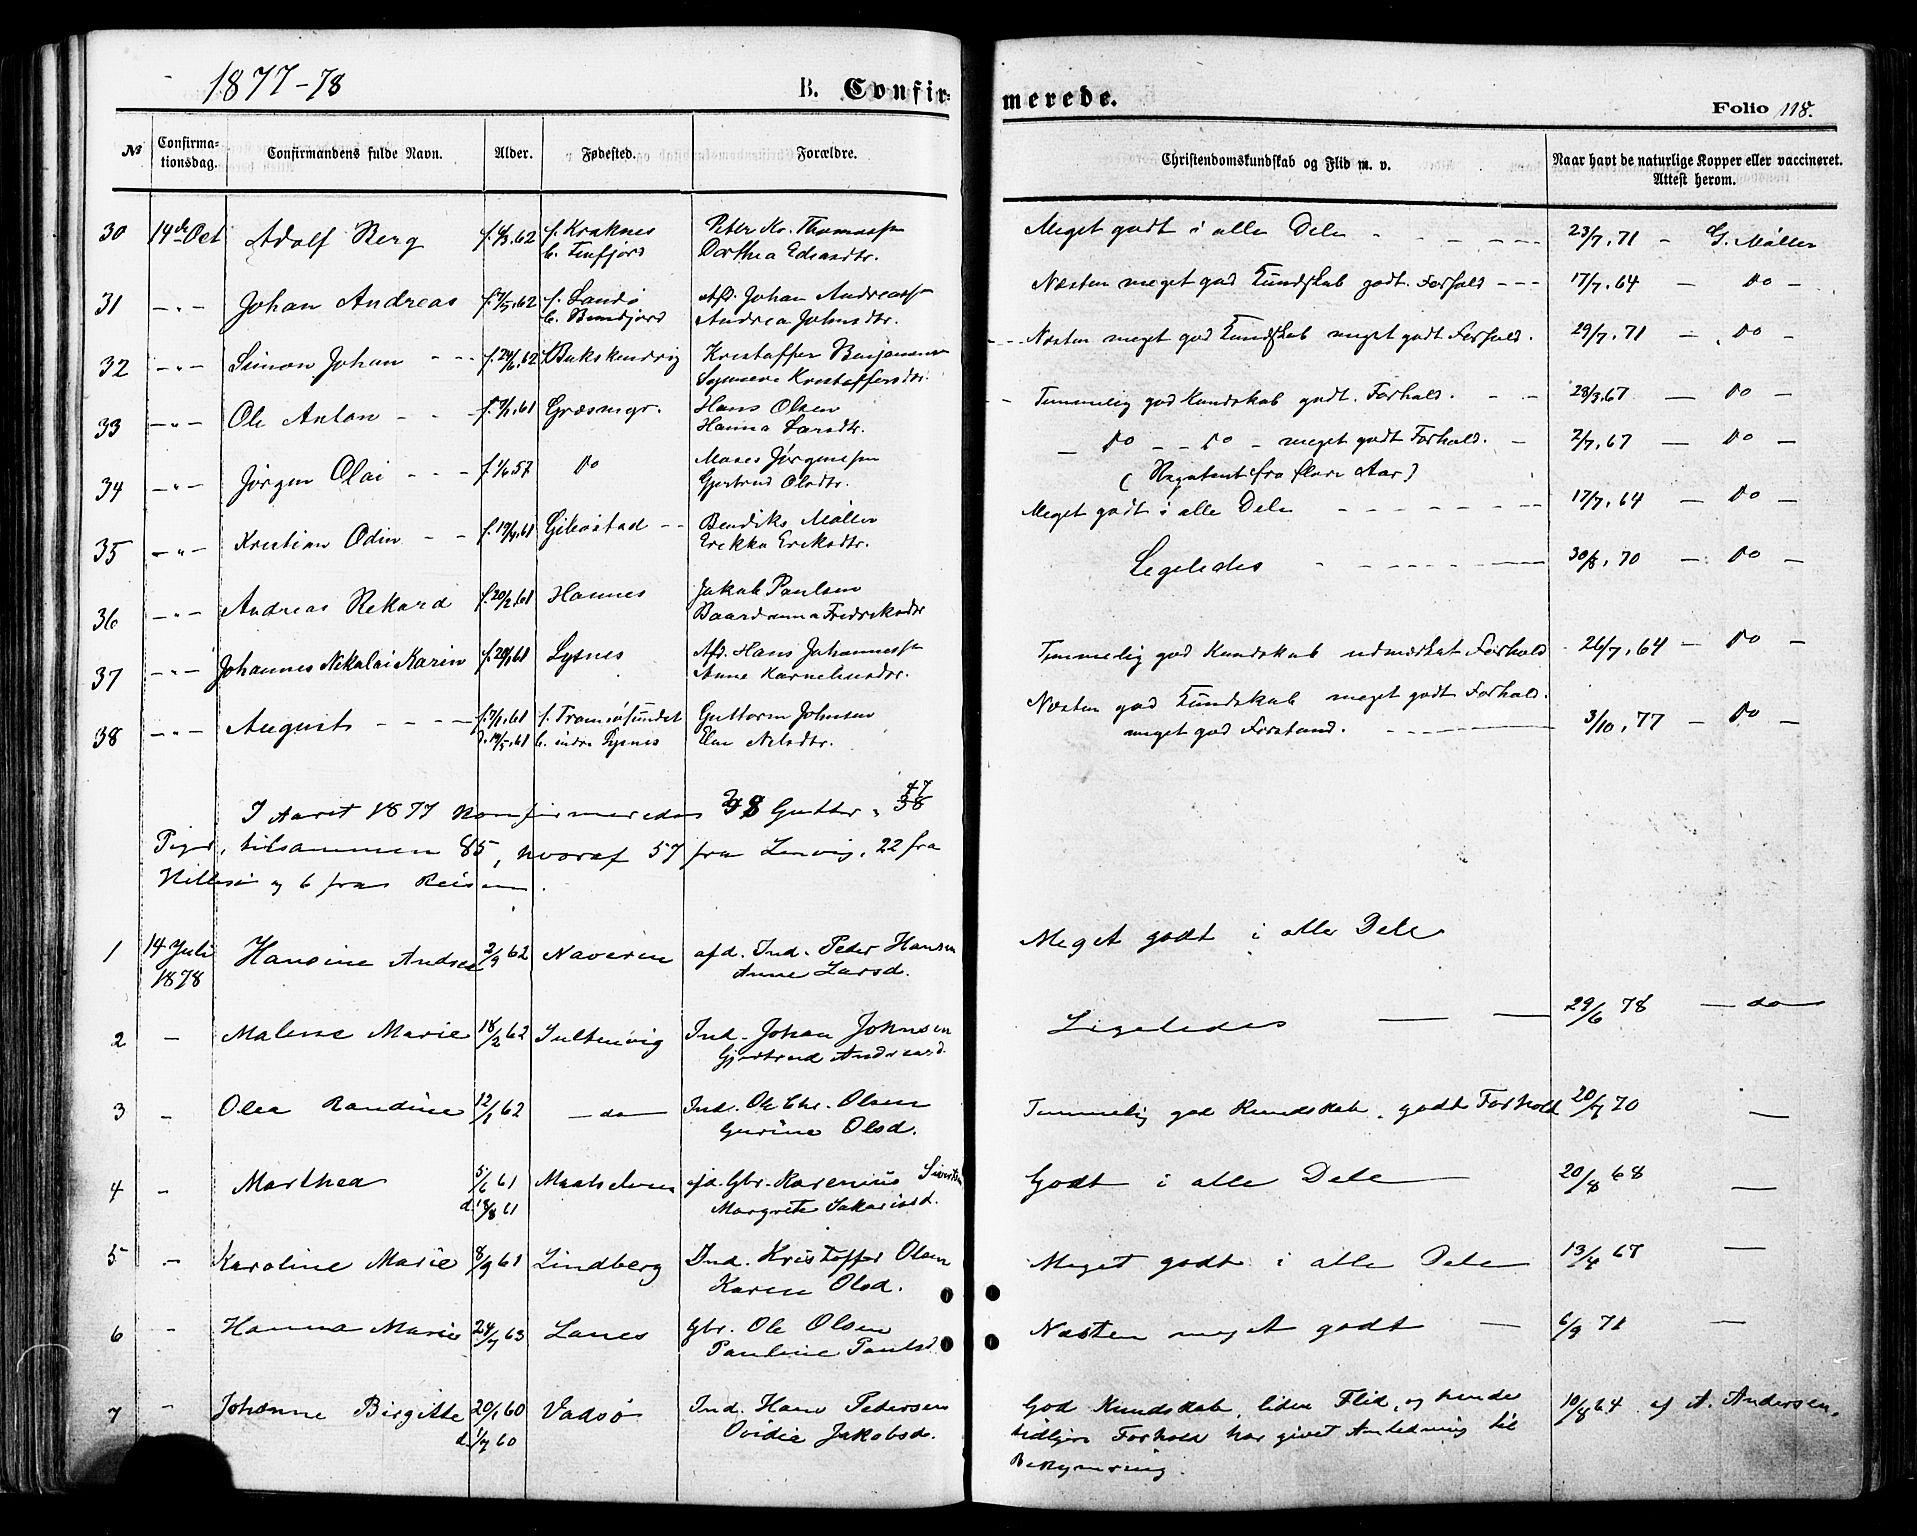 1877-78
B. Confirmerede.
Folio 118.
№ Confirmationsdag. Confirmandens fulde Navn. Alder. Fødested. Forældre. Christendomskundskab og Flid m. v. Naar havt de naturlige Kopper eller vaccineret. Attest herom.
30 14de Oct Adolf Berg f. 4/3. 62 f. Kraknes Peter Kr. Thomassen Meget godt i alle Dele - - - 23/7. 71 - G. Møller
b. Dorthea Edvardtr.
31 -"- Johan Andreas f. 7/5. 62 f. Sandø Afd. Johan Andreassen Næsten meget god Kundskab godt Forhold - - - 17/7. 64 - Do -
b. Andrea Johnsdtr.
32 -"- Simon Johan - - - f. 24/6. 62 Kristoffer Benjaminsen - - Næsten meget god Kundskab meget godt Forhold. 29/7. 71 - Do -
Kristoffersdtr.
33 -"- Ole Anton - - f. 7/1. 61 Græsmyr. Hans Olsen - Temmelig god Kundskab godt Forhold. - - 23/3. 67 - Do -
Hanna Larsdtr.
34 -"- Jørgen Olai - - - f. 1/6. 57 Do Moses Jørgensen - Do - - Do - meget godt Forhold. - 2/7. 67 - Do -
Gjertrud Olsdtr. (Repetent fra flere Aar)
35 -"- Kristian Odin - - f. 19/4. 61 Gibostad - - Bendiks Møller Meget godt i alle Dele - - - 17/7. 64 - Do -
Erikka Eriksdtr.
36 -"- Andreas Rekard f. 20/2. 61 Havnes Jakob Paulsen Ligeledes - - - 30/8. 70 - Do -
Fredriksdtr
37 -"- Johannes Nikolai Karin f. 61 Lysnes Afd. Hans Johannessen Temmelig god Kundskab udmærket Forhold - 26/7. 64 - Do -
Anne Korneliusdtr.
38 -"- August - - - f. 7/1. 61 f. Tromsøsundet Guttorm Johnsen Næsten god Kundskab meget godt Forhold. 3/10. 77 - Do -
d. 19/5. 61 b. indre Lysnes Elen Nilsdtr. meget god Forstand. - - -
I Aaret 1877 konfirmeredes 38 Gutter, 47
Piger, tilsammen 85, hvoraf 57 fra Lenvig, 22 fra
Hillesø og 6 fra Reisen.
1 14 Juli Hansine Andrea 2/9 62 Naveren afd. Ind. Peter Hansen Meget godt i alle Dele
1878 Anne Larsd.
2 - Malene Marie 18/2 62 Sultenvig Ind. Johan Johnsen Ligeledes - - 29/6 78 - do
Gjertrud Andreasd.
3 - Olea Randine 12/1 62 - do - Ind. Ole Chr. Olsen Temmelig god Kundskab, godt Forhold 20/7 70 -
Gurine Olsd.
4 - Marthea 5/6 61 Maalselven afd. Gbr. Karenius Sivertsen Godt i alle Dele 20/8 68 -
d. 18/8 61 Margrete Sakariasd.
5 - Karoline Marie 8/9 61 Lindberg Ind. Kristoffer Olsen Meget godt i alle Dele 13/4 67 -
Karen Olsd.
6 - Hanna Marie 24/7 63 Lanes Gbr. Ole Olsen Næsten meget godt - 6/9 71 -
Pauline Paulsd
7 - Johanne Birgitte 20/1 60 Vadsø Ind. Hans Pedersen God Kundskab, liden Flid, og hendes 10/8 64 af A. Andersen.
d. 1/7 60 Ovidie Jakobsd. tidligere Forhold har givet Anledning til
Bekymring.